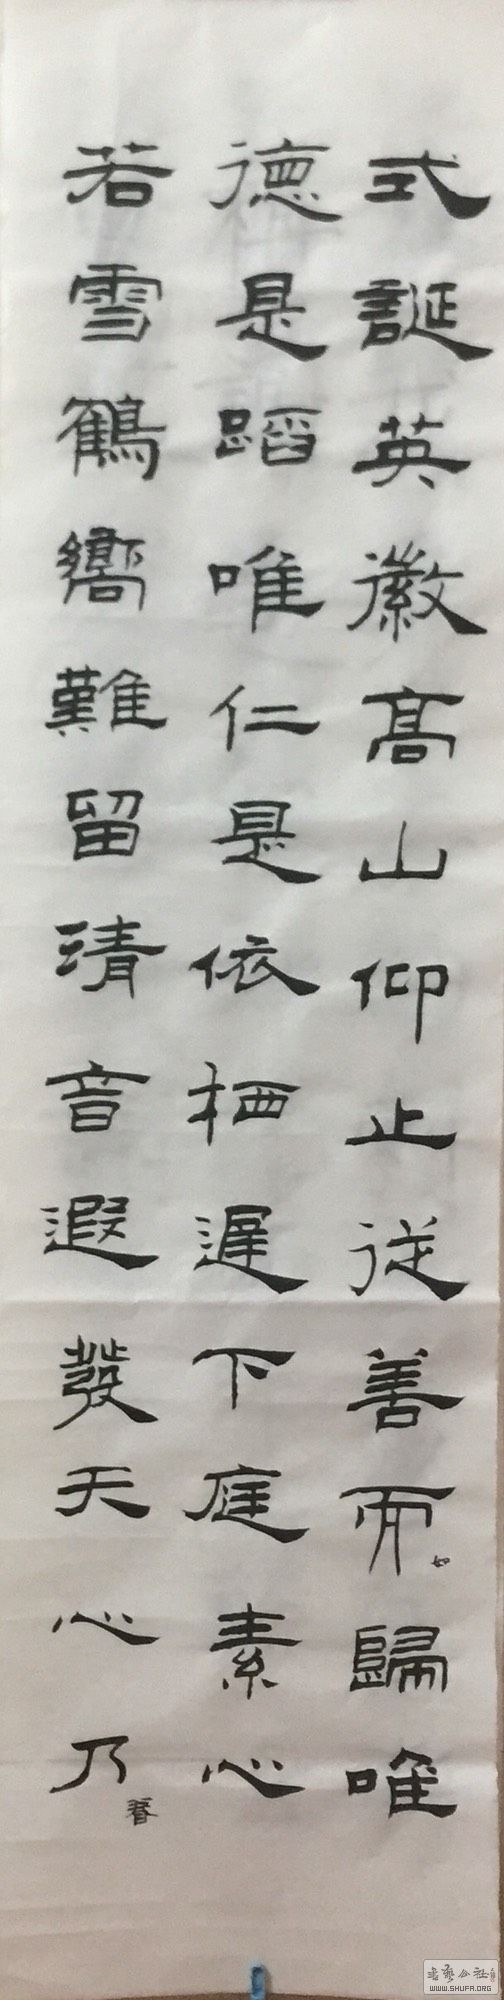 式誕英徽髙山仰止従善而歸唯
如
德是蹈唯仁是依栖遲下庭素心
若雪鶴嚮難留清音遐發天心乃
眷
书艺公社
WWW.SHUFA.ORG